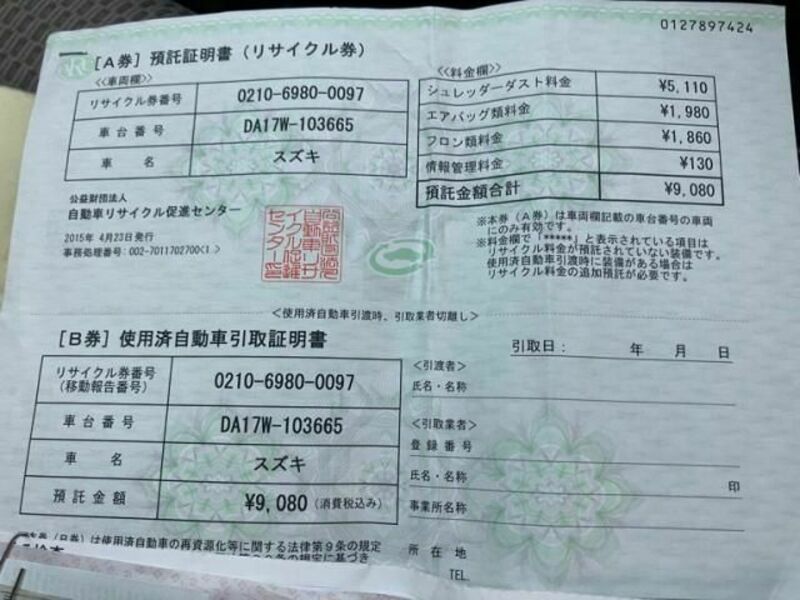 0127897424
[A券] 預託証明書 (リサイクル券)
<<車両欄>>
リサイクル券番号 0210-6980-0097
車台番号 DA17W-103665
車名 スズキ
<<料金欄>>
シュレッダーダスト料金 ¥5,110
エアバッグ類料金 ¥1,980
フロン類料金 ¥1,860
情報管理料金 ¥130
預託金額合計 ¥9,080
公益財団法人
自動車リサイクル促進センター
2015年 4月23日発行
事務処理番号:002-7011702700<1.>
※本券(A券)は車両欄記載の車台番号の車両
にのみ有効です。
※料金欄で「*****」と表示されている項目は
リサイクル料金が預託されていない装備です。
使用済自動車引渡時に装備がある場合は
リサイクル料金の追加預託が必要です。
<使用済自動車引渡時、引取業者切離し>
[B券] 使用済自動車引取証明書
リサイクル券番号
(移動報告番号) 0210-6980-0097
車台番号 DA17W-103665
車名 スズキ
預託金額 ¥9,080 (消費税込み)
引取日: 年 月 日
<引渡者>
氏名・名称
<引取業者>
登録番号
氏名・名称 印
事業所名称
所在地
TEL.
本券(B券)は使用済自動車の再資源化等に関する法律第9条の規定